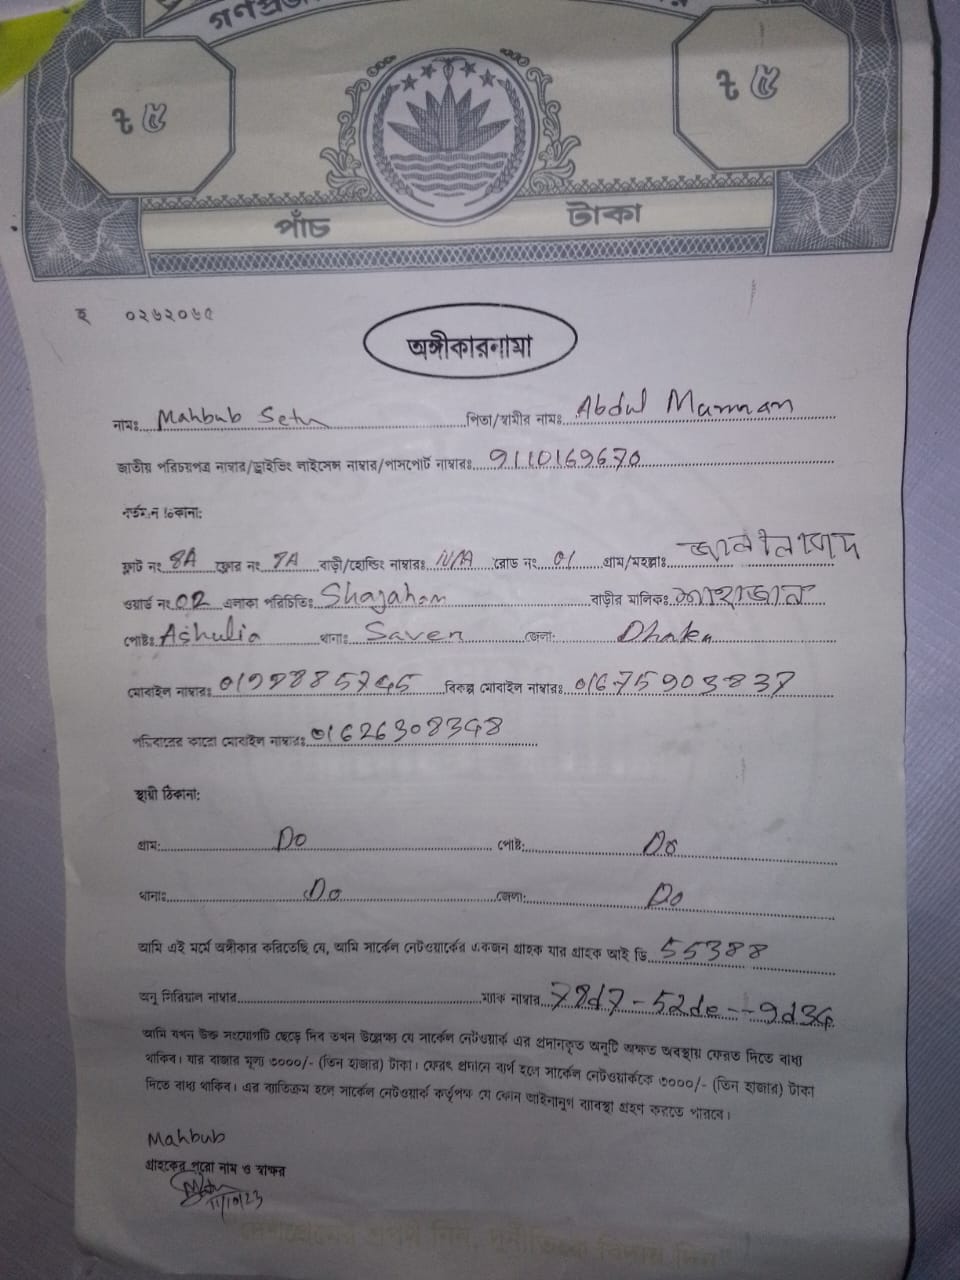 গণপ্রজা
৳ ৫ ৳ ৫
পাঁচ টাকা
ছ ০২৬২০৬৫
অঙ্গীকারনামা
নামঃ Mahbub Setu পিতা/স্বামীর নামঃ Abdul Mannan
জাতীয় পরিচয়পত্র নাম্বার/ড্রাইভিং লাইসেন্স নাম্বার/পাসপোর্ট নাম্বারঃ 9110169670
বর্তমান ঠিকানা:
ফ্লাট নং 8A ফ্লোর নং 7A বাড়ী/হোল্ডিং নাম্বারঃ N/A রোড নং 01 গ্রাম/মহল্লাঃ
ওয়ার্ড নং 02 এলাকা পরিচিতিঃ Shajahan বাড়ীর মালিকঃ শাহাজান
পোষ্টঃ Ashulia থানাঃ Saver জেলা: Dhaka
মোবাইল নাম্বারঃ বিকল্প মোবাইল নাম্বারঃ 01675903837
পরিবারের কারো মোবাইল নাম্বারঃ 01626308348
স্থায়ী ঠিকানা:
গ্রাম: Do পোষ্ট: Do
থানাঃ Do জেলা: Do
আমি এই মর্মে অঙ্গীকার করিতেছি যে, আমি সার্কেল নেটওয়ার্কের একজন গ্রাহক যার গ্রাহক আই ডি 55388
অনু সিরিয়াল নাম্বার ম্যাক নাম্বার 78d7-52de--9d34
আমি যখন উক্ত সংযোগটি ছেড়ে দিব তখন উল্লেক্ষ্য যে সার্কেল নেটওয়ার্ক এর প্রদানকৃত অনুটি অক্ষত অবস্থায় ফেরত দিতে বাধ্য
থাকিব। যার বাজার মূল্য ৩০০০/- (তিন হাজার) টাকা। ফেরৎ প্রদানে ব্যর্থ হলে সার্কেল নেটওয়ার্ককে ৩০০০/- (তিন হাজার) টাকা
দিতে বাধ্য থাকিব। এর ব্যাতিক্রম হলে সার্কেল নেটওয়ার্ক কর্তৃপক্ষ যে কোন আইনানুগ ব্যাবস্থা গ্রহণ করতে পারবে।
Mahbub
গ্রাহকের পুরো নাম ও স্বাক্ষর
11/10/23
"দেশপ্রেমের শপথ নিন, দুর্নীতিকে বিদায় দিন"